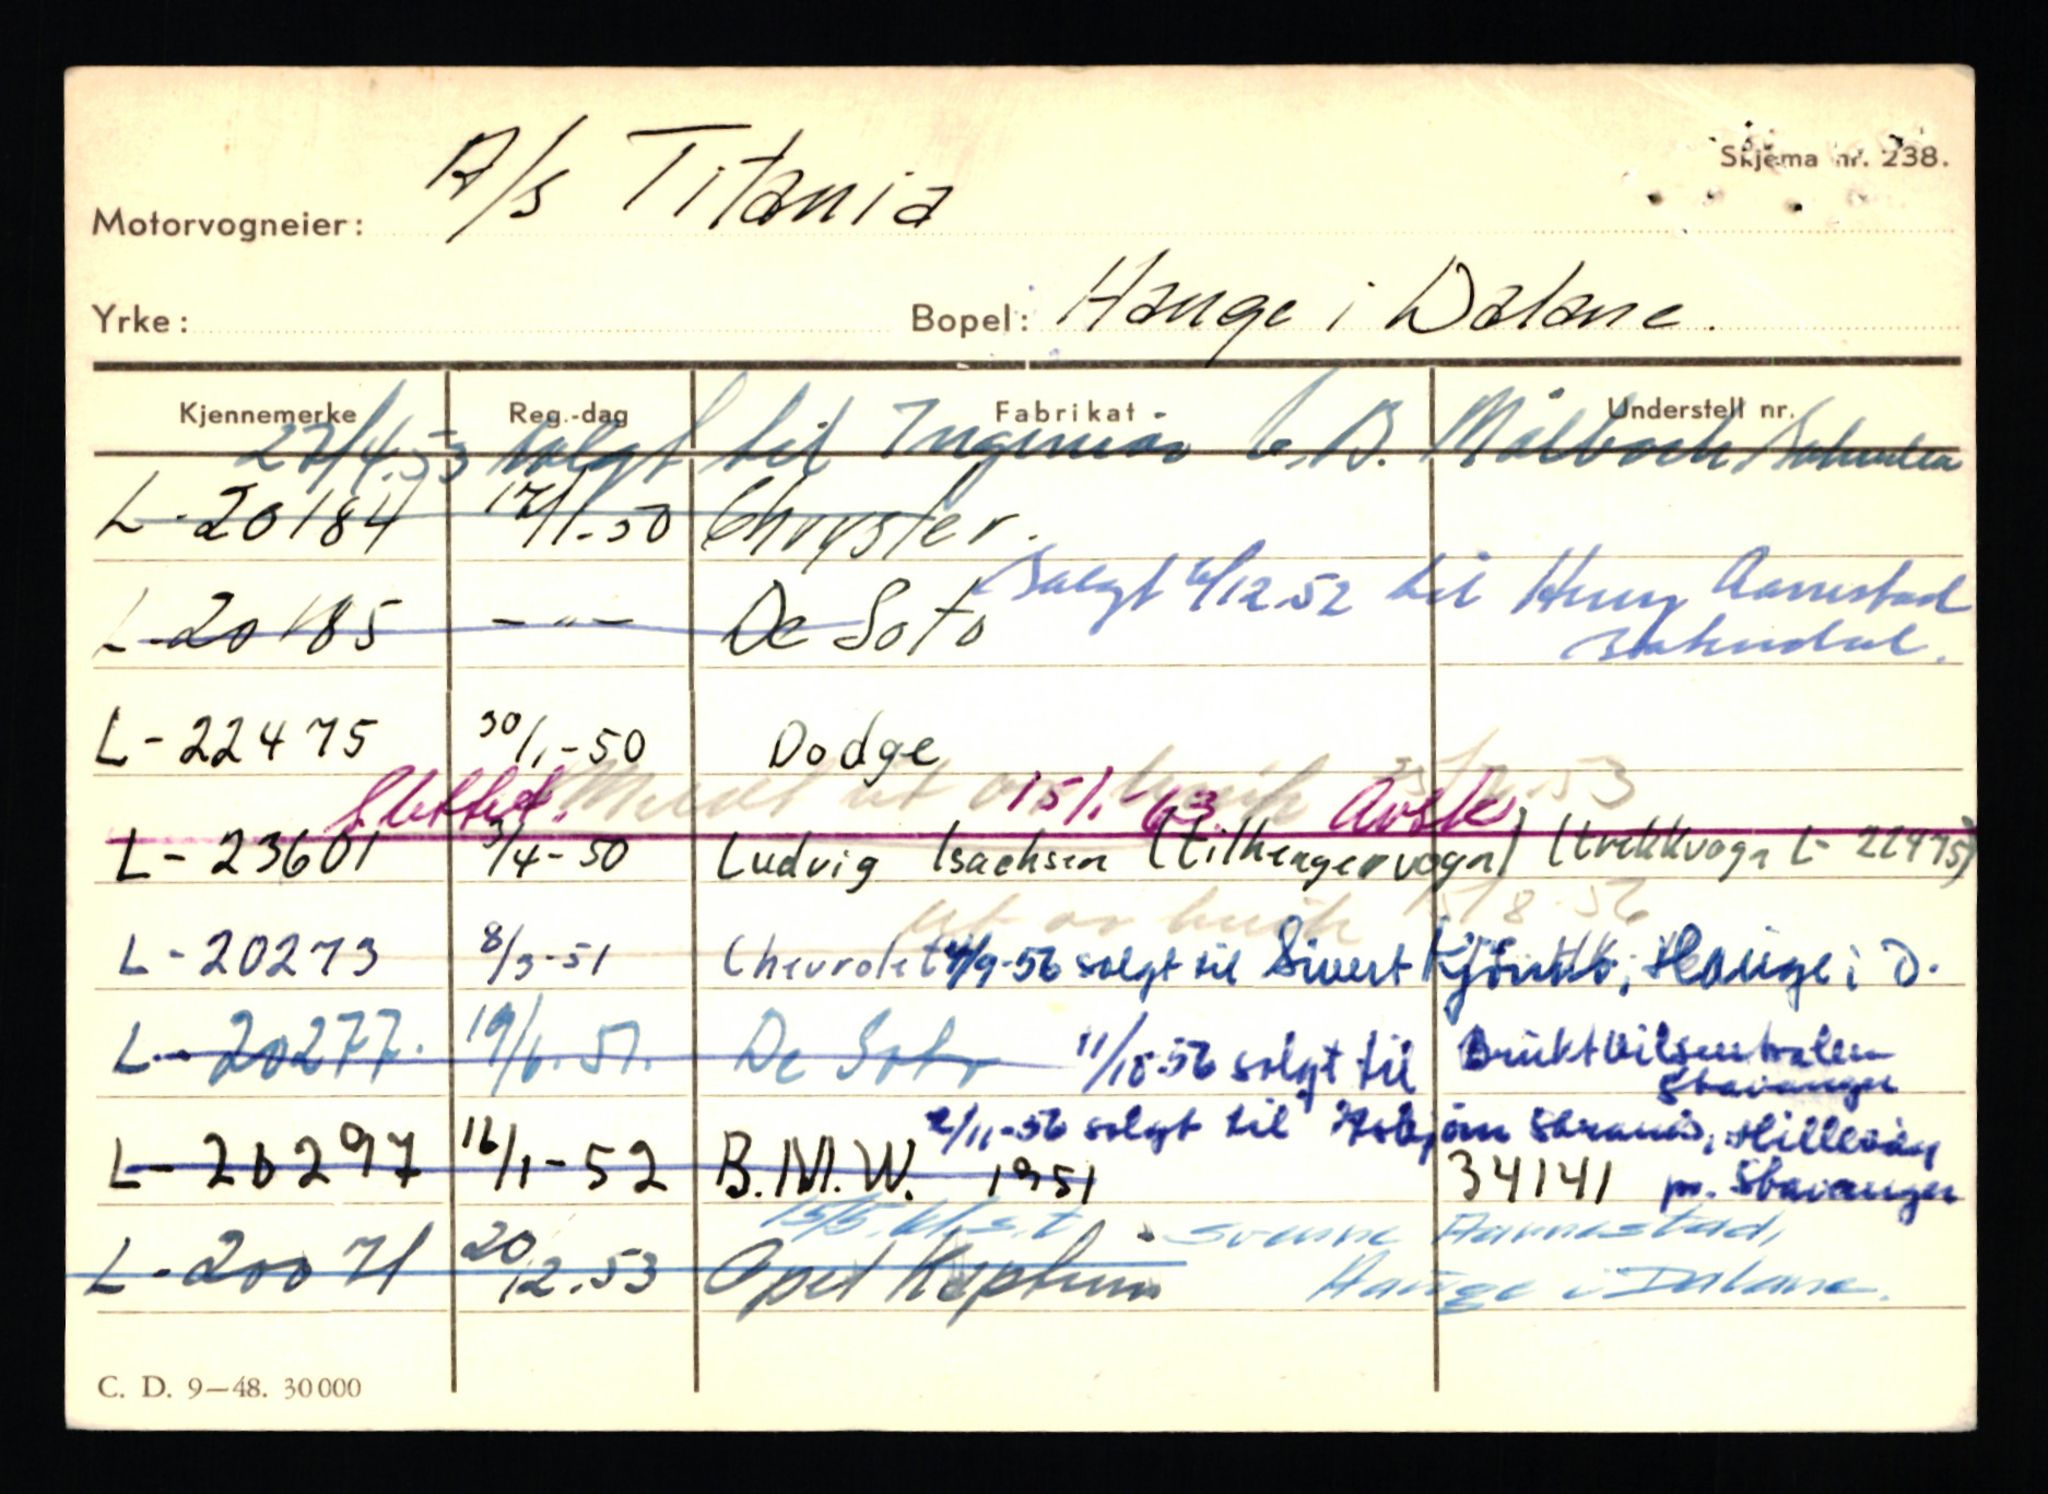 Skjema nr. 238.
Motorvogneier: A/s Titania
Yrke: Bopel: Hauge i Dalane.
Kjennemerke Reg.-dag Fabrikat Understell nr.
27/4.53 solgt til Ingeniør C. B. Sokndal
L-20184 17/1-50 Chrysler.
Solgt 6/12.52 til Henry Aarrestad
L-20185 -"- De Soto
Sokndal.
L-22475 30/1-50 Dodge
Slettet. Meldt ut av bruk 53
15/1-63. Avsk
L-23601 3/4-50 Ludvig Isachsen (tilhengervogn) (trekkvogn L-22475)
ut av bruk 15/8-56
L-20273 8/3-51 Chevrolet 4/9-56 solgt til Sivert Hauge i D.
L-20277. 19/6.51. De Soto 11/10-56 solgt til Bruktbilsentralen
Stavanger
2/11-56 solgt til Hillevåg
L-20297 16/1-52 B.M.W. 1951 34141 pr. Stavanger
15/5.61.s.t Svenne Aarrestad,
L-20071 20/12.53 Opel Kaptein Hauge i Dalane.
C. D. 9—48. 30000